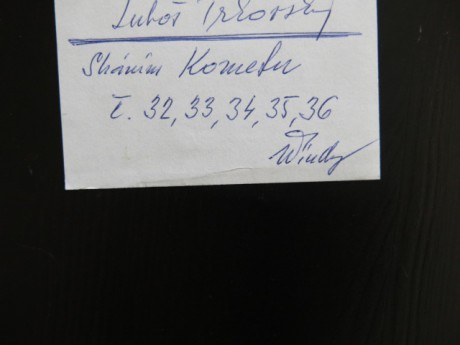 Luboš
Sháním Kometu
č. 32, 33, 34, 35, 36
Windy